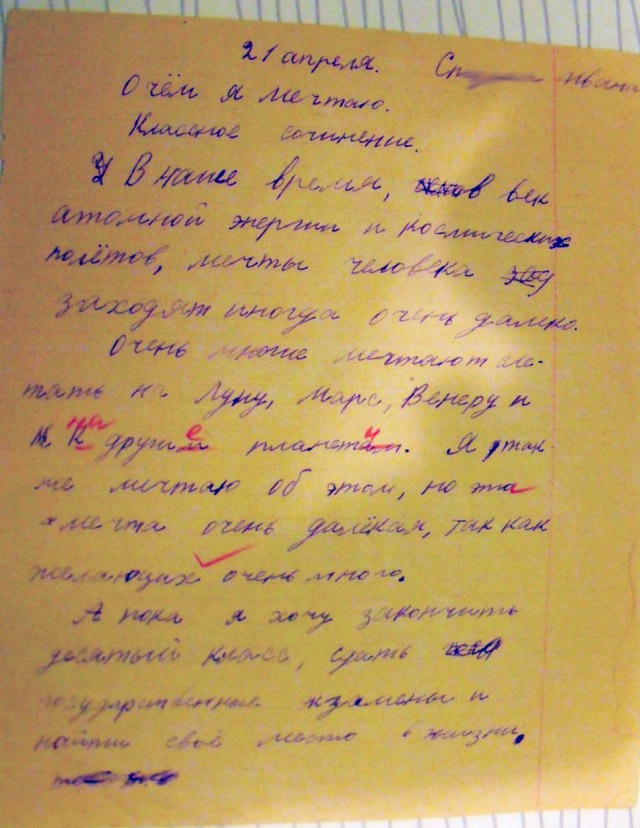 21 апреля. Ивана
О чём я мечтаю.
Классное сочинение.
В наше время, в век
атомной энергии и космических
полётов, мечты человека
заходят иногда очень далеко.
Очень многие мечтают сле-
тать на Луну, Марс, Венеру и
на другие планеты. Я так-
же мечтаю об этом, но эта
мечта очень далёкая, так как
желающих очень много.
А пока я хочу закончить
десятый класс, сдать
государственные экзамены и
найти своё место в жизни.